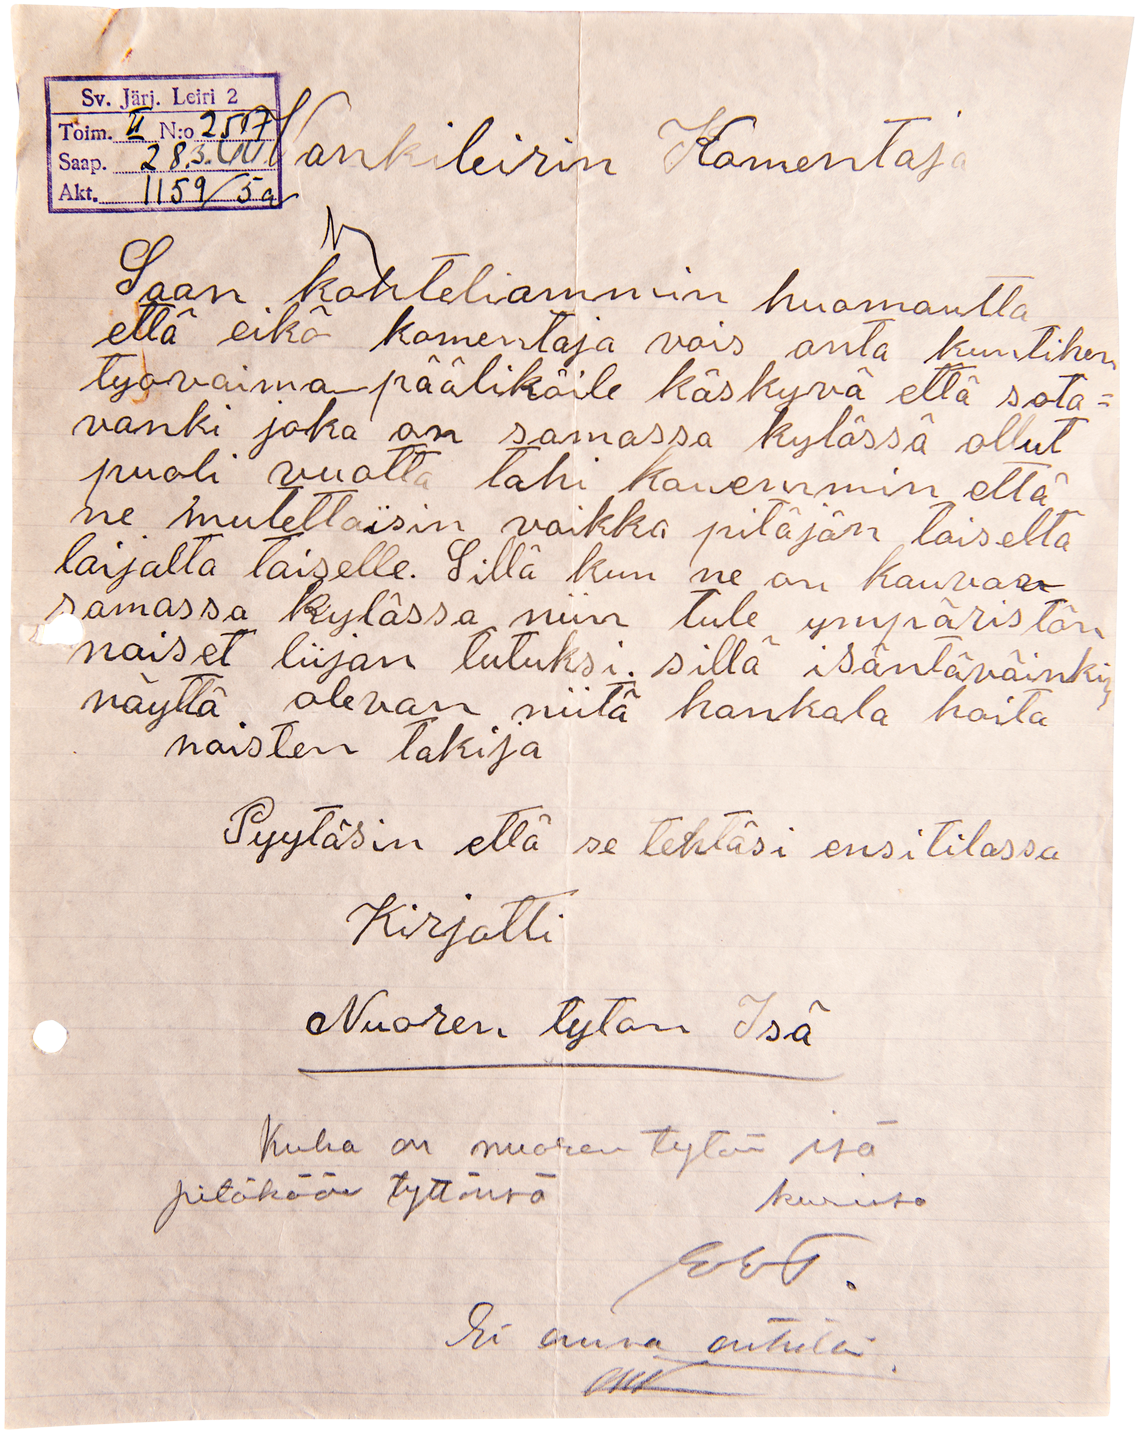 Sv. Järj. Leiri 2
Toim. II N:o 2517
Saap. 28.3.
Akt. 1159/5a
Vankileirin Komentaja
Saan kohteliammin huomautta
että eikö komentaja vois anta kuntihen
työvoima päälikäile käskyvä että sota=
vanki joka on samassa kylässä ollut
puoli vuotta tahi kauemmin että
ne mutettaisin vaikka pitäjän laiselta
laijalta laiselle. Sillä kun ne on kauvan
samassa kylässä niin tule ympäristön
naiset liijan tutuksi. sillä isäntäväinkin
näyttä olevan niitä hankala hoita
naisten takija
Pyytäsin että se tehtäsi ensitilassa
Kirjotti
Nuoren tytön Isä
Kuka on nuoren tytön isä
pitäköön tyttönsä kurissa
Ei anna aihetta.